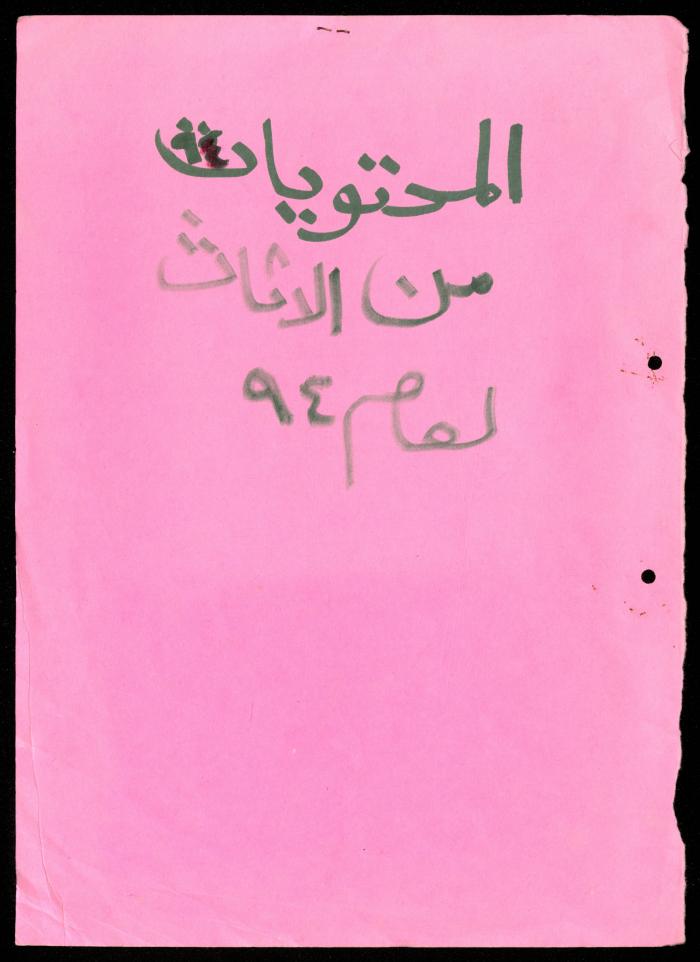 المحتويات ٩٤
من الاثاث
لعام ٩٤